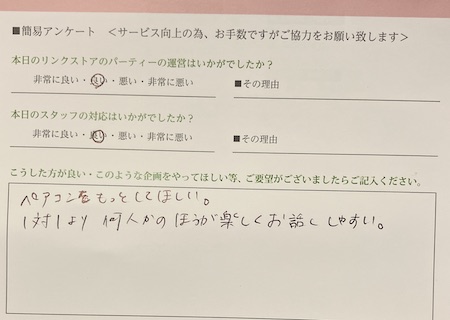 ■簡易アンケート ＜サービス向上の為、お手数ですがご協力をお願い致します＞
本日のリンクストアのパーティーの運営はいかがでしたか？
非常に良い・良い・悪い・非常に悪い ■その理由
本日のスタッフの対応はいかがでしたか？
非常に良い・良い・悪い・非常に悪い ■その理由
こうした方が良い・このような企画をやってほしい等、ご要望がございましたらご記入ください。
ペアコンをもっとしてほしい。
1対1より何人かのほうが楽しくお話ししやすい。